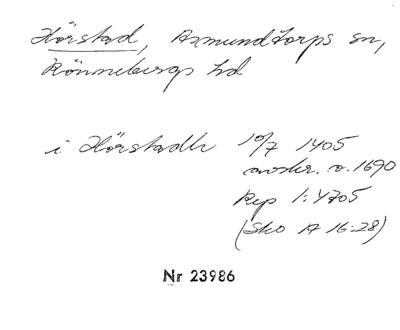 Hörstad, Asmundtorps sn,
Rönnebergs hd
i Hörstadh 10/7 1405
avskr. o. 1690
Rep 1:4705
(Sko A 16:28)
Nr 23986